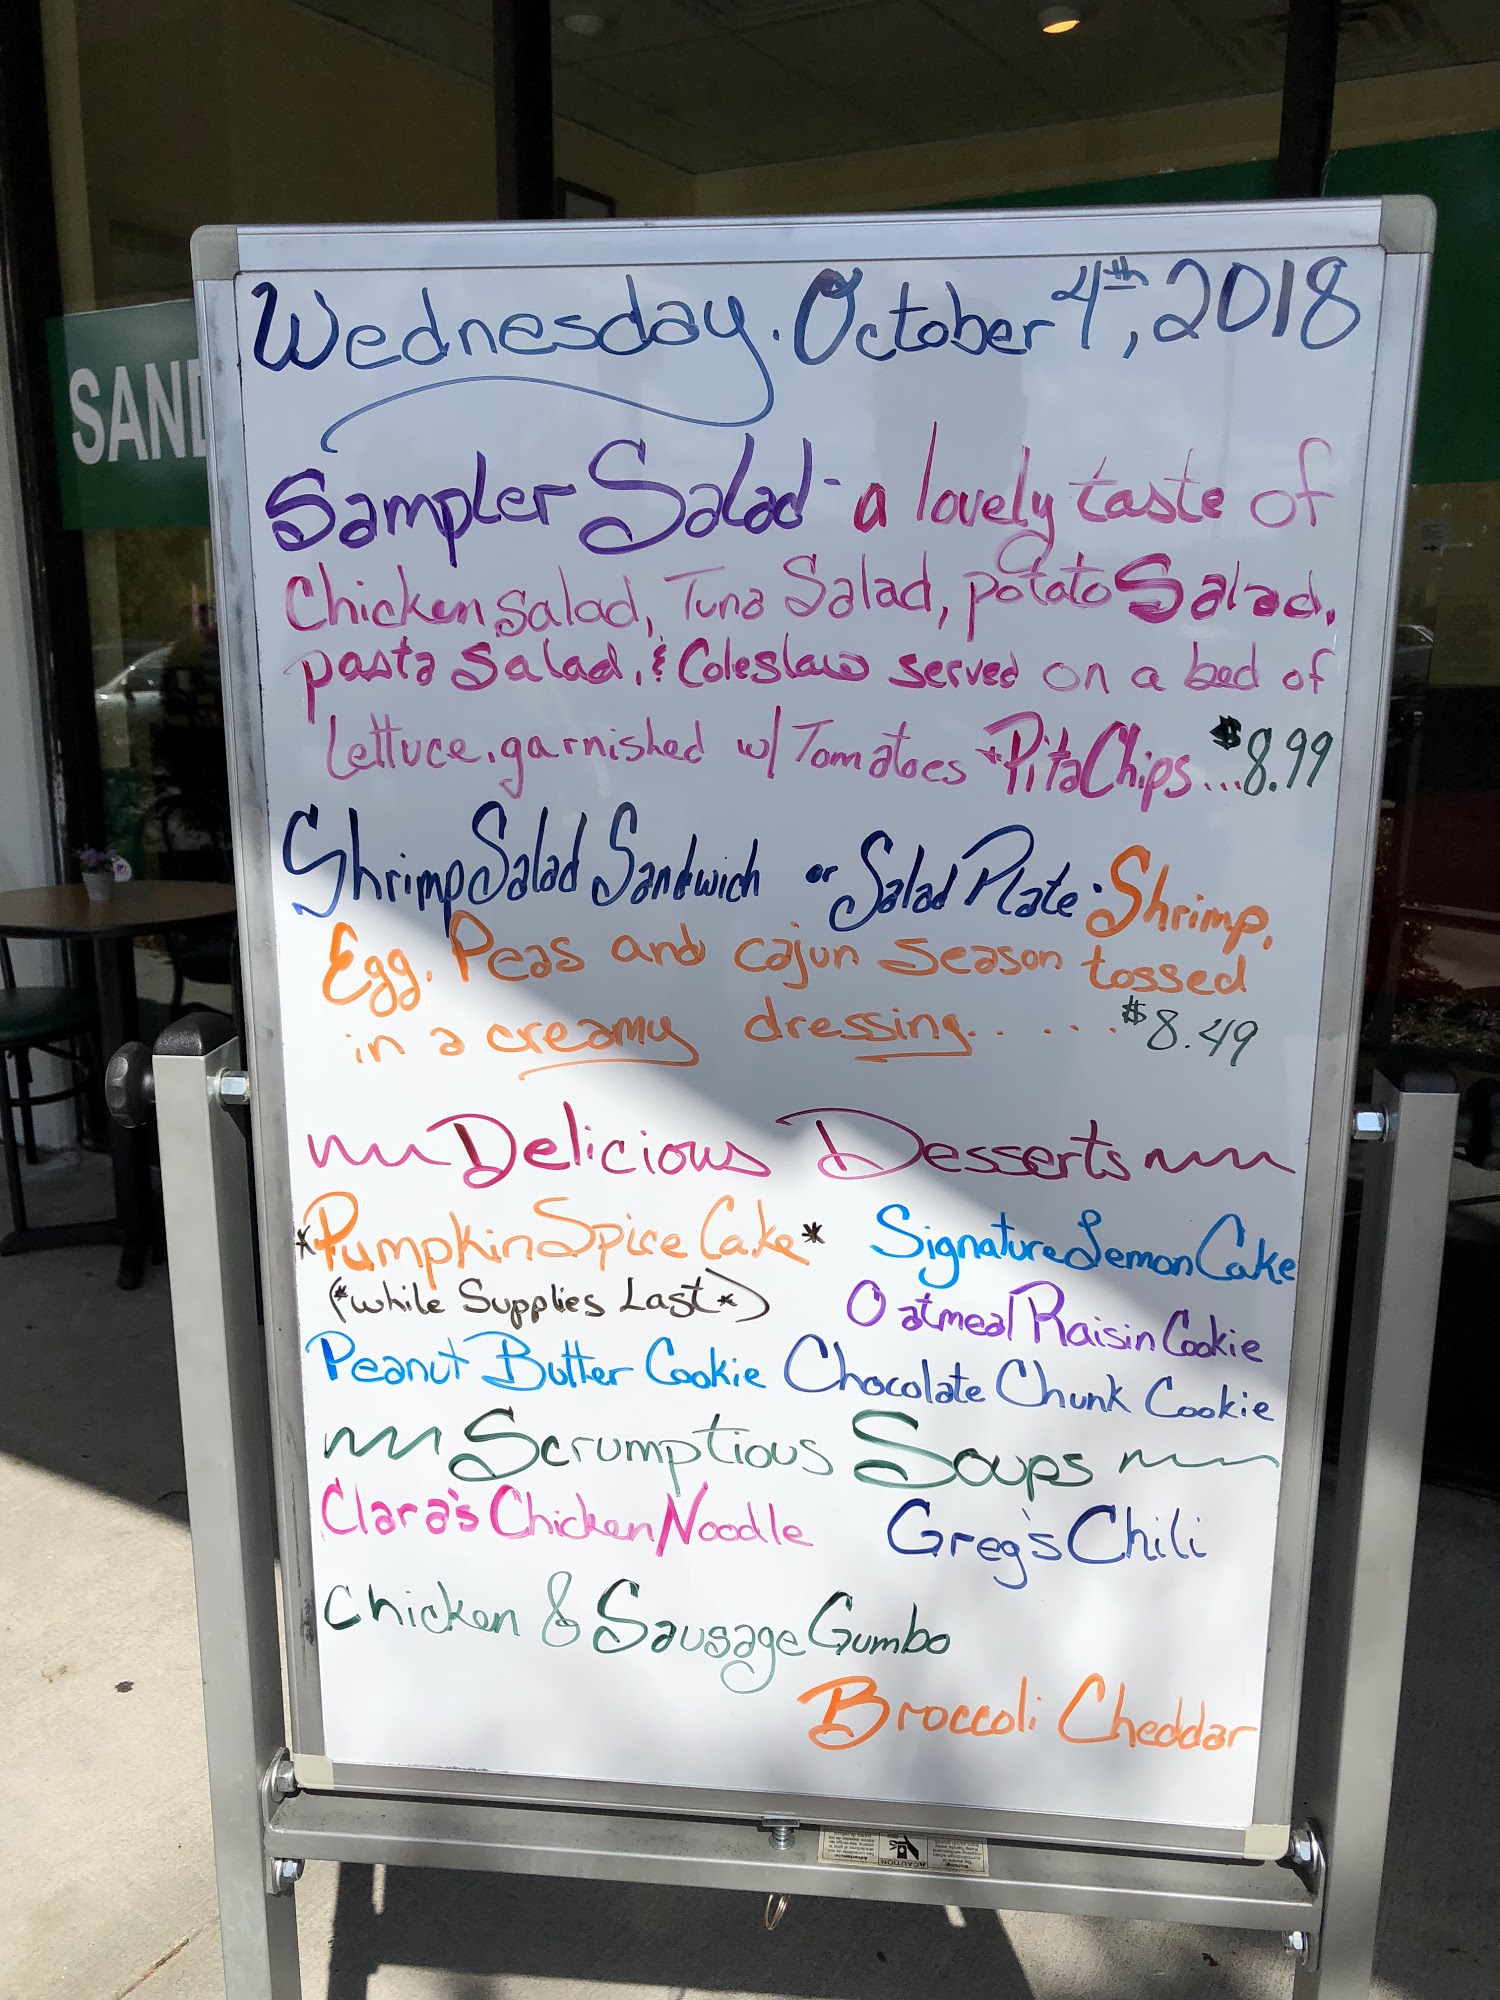 Wednesday. October 4th, 2018
SAND
Sampler Salad - a lovely taste of
Chicken salad, Tuna Salad, potato Salad,
pasta salad, & Coleslaw served on a bed of
lettuce, garnished w/ Tomatoes + Pita Chips...$8.99
Shrimp Salad Sandwich or Salad Plate - Shrimp,
Egg, Peas and cajun season tossed
in a creamy dressing......$8.49
Delicious Desserts
*Pumpkin Spice Cake* Signature Lemon Cake
(*while Supplies Last*) Oatmeal Raisin Cookie
Peanut Butter Cookie Chocolate Chunk Cookie
Scrumptious Soups
Clara's Chicken Noodle Greg's Chili
Chicken & Sausage Gumbo
Broccoli Cheddar
CAUTION